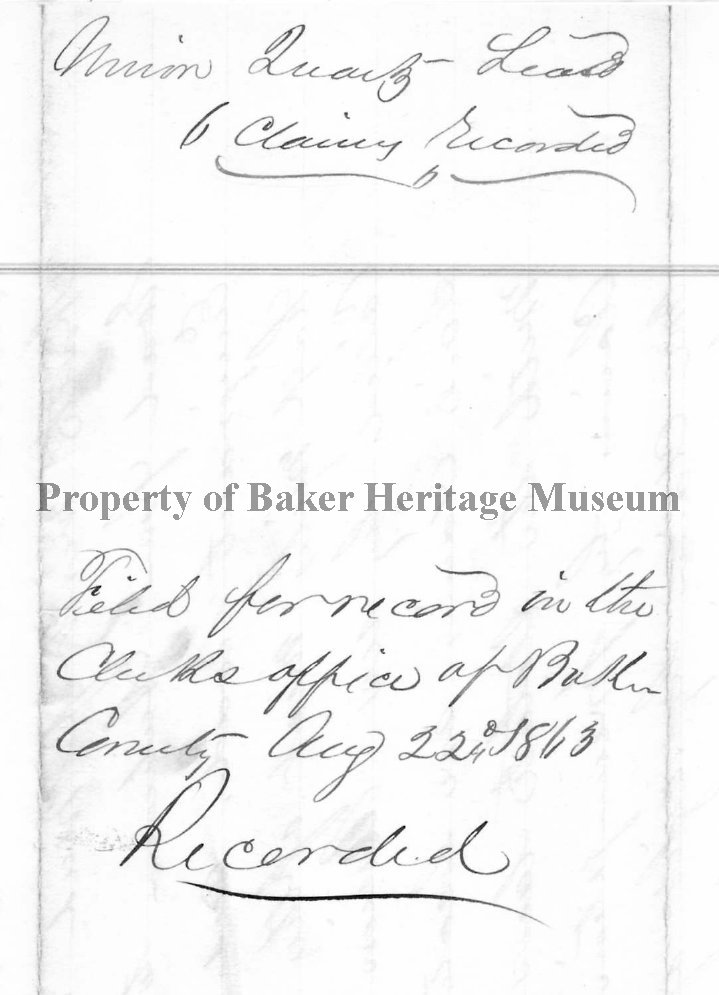 Union Quartz Lead
6 Claims Recorded
6
Property of Baker Heritage Museum
Filed for record in the
Clerks office of Baker
County Aug 22d 1863
Recorded